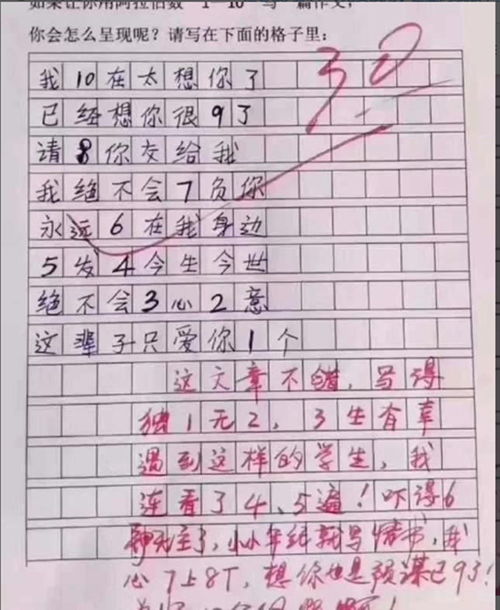 如果让你用阿拉伯数 1 10 写一篇作文，
你会怎么呈现呢？请写在下面的格子里：
30
我10在太想你了
已经想你很9了
请8你交给我
我绝不会7负你
永远6在我身边
5发4今生今世
绝不会3心2意
这辈子只爱你1个
这文章不错，写得
独1无2，3生有幸
遇到这样的学生，我
连看了4、5遍！吓得6
神无主了，小小年纪就写情书，我
心7上8下，想你也是预谋已9了！